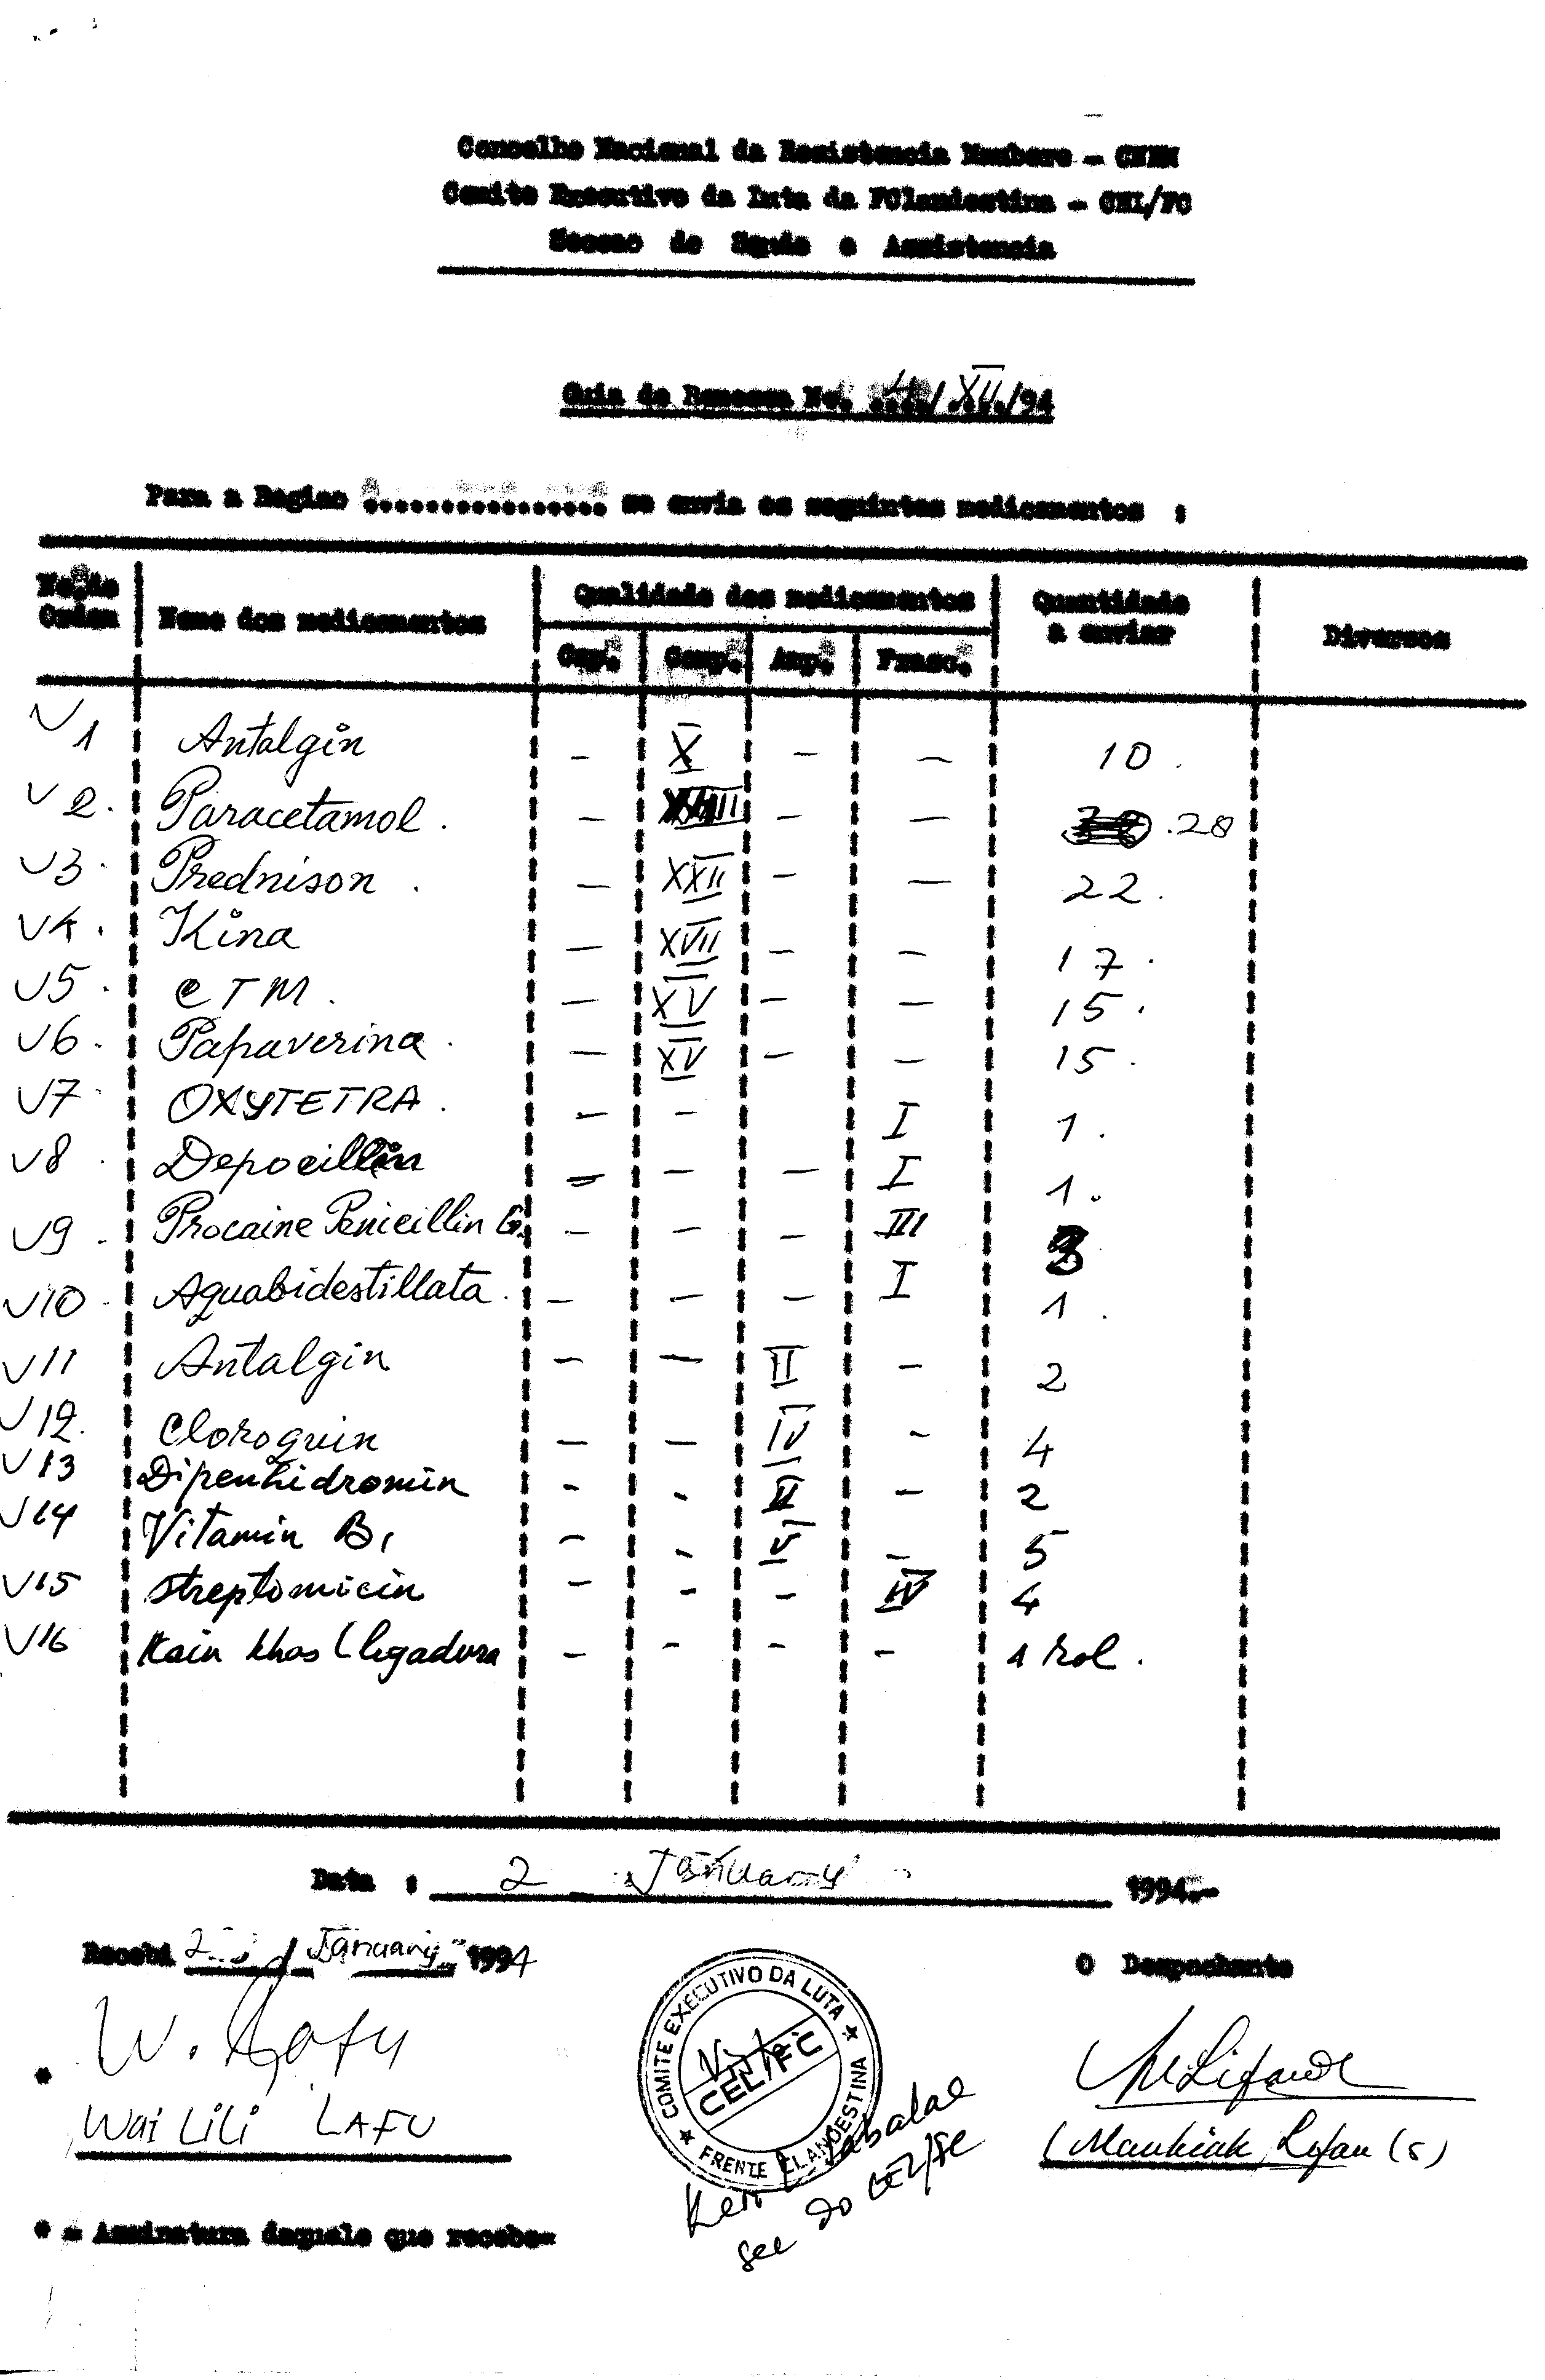 Concelho Nacional da Resistencia Maubere - CNRM
Comite Executivo da Luta da FClandestina - CEL/FC
Seccao de Squde e Assistencia
Guia de Remessa No. 4/XII/94
Para a Regiao ................ se envia os seguintes medicamentos :
No.de Ordem Nome dos medicamentos Qualidade dos medicamentos Quantidade a enviar Diversos
Cap. Comp. Amp. Frasc.
V 1 Antalgin - X - - 10.
V 2. Paracetamol. - - - .28
V 3. Prednison. - XXII - - 22.
V 4. Kina - XVII - - 17.
V 5. CTM. - XV - - 15.
V 6. Papaverina. - XV - - 15.
V 7. OXYTETRA. - - I 1.
V 8. Depocillin - - - I 1.
V 9. Procaine Penicillin G. - - - III 3
V 10. Aquabidestillata. - - - I 1.
V 11 Antalgin - - II - 2
V 12. Cloroquin - - IV - 4
V 13 Dipenhidromin - - II - 2
V 14 Vitamin B1 - - V - 5
V 15 Streptomicin - - - IV 4
V 16 Kain khas (ligadura - - - - 1 rol.
Data : 2 January 1994.-
Recebi 2 / January 1994
O Despachante
W. Lafu
* Wai Lili LAFU
COMITE EXECUTIVO DA LUTA
Visto:
CEL/FC
FRENTE CLANDESTINA
Keri Labalae
Sec do CEL/FC
(Maukiak, Lifau (s)
* = Assinatura daquele que recebe=